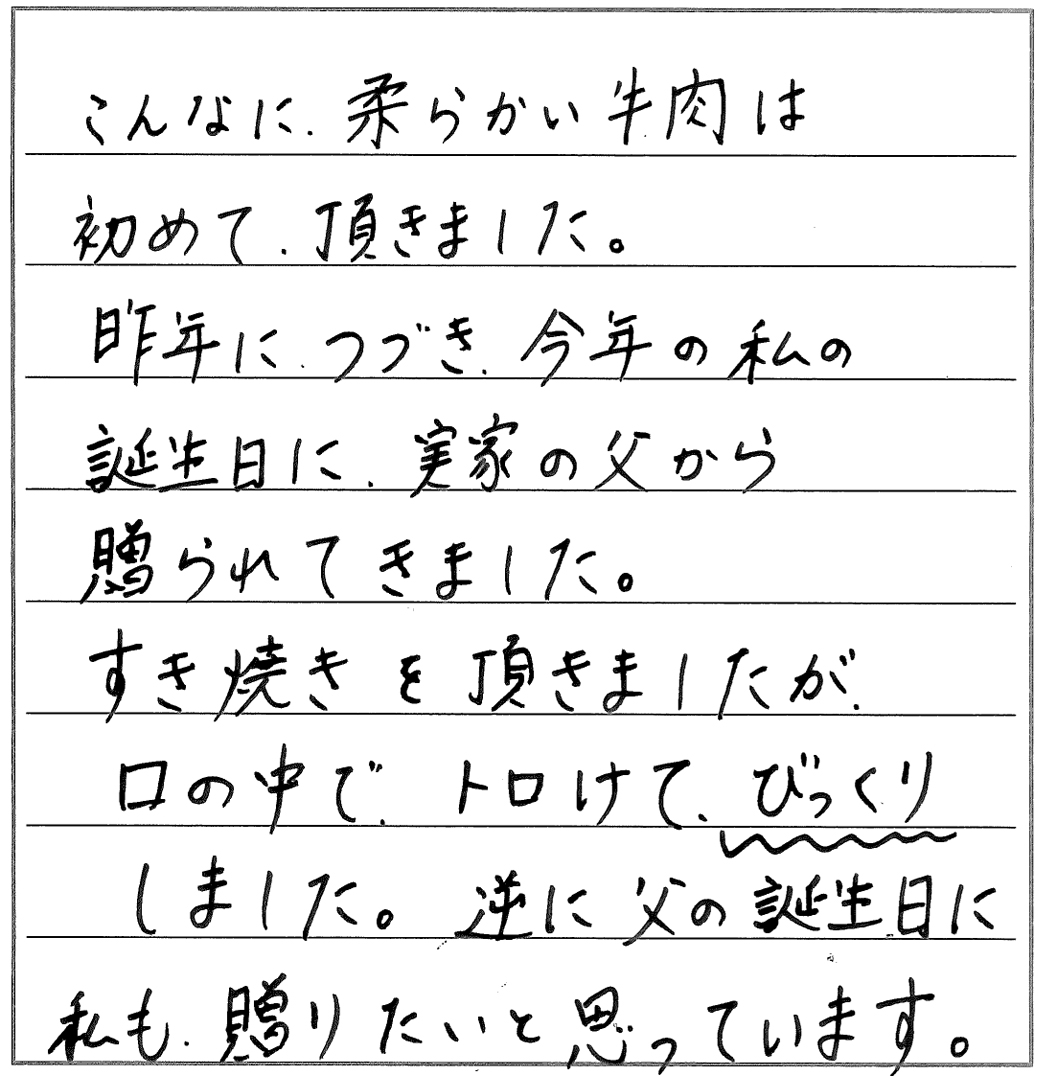 こんなに、柔らかい牛肉は
初めて、頂きました。
昨年に、つづき、今年の私の
誕生日に、実家の父から
贈られてきました。
すき焼きを頂きましたが、
口の中で、トロけて、びっくり
しました。逆に父の誕生日に
私も、贈りたいと思っています。